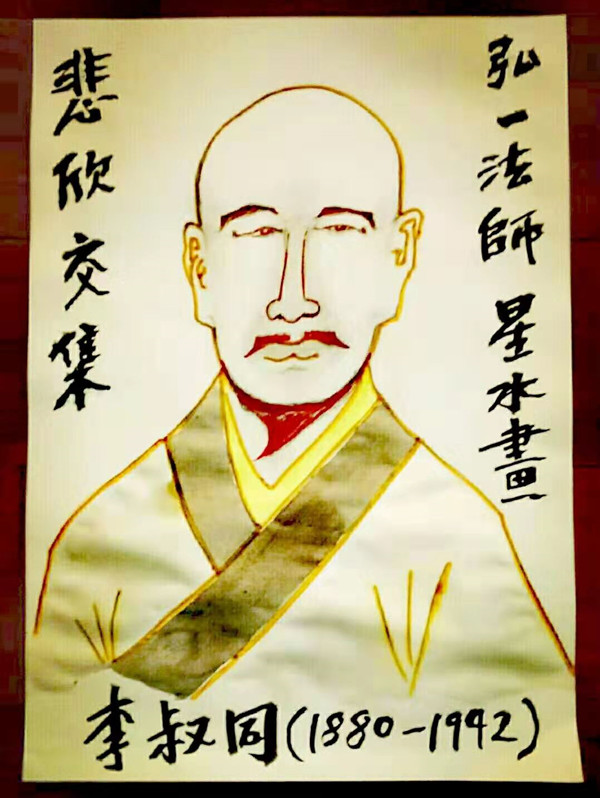 弘一法師 星水畫
悲欣交集
李叔同(1880-1942)